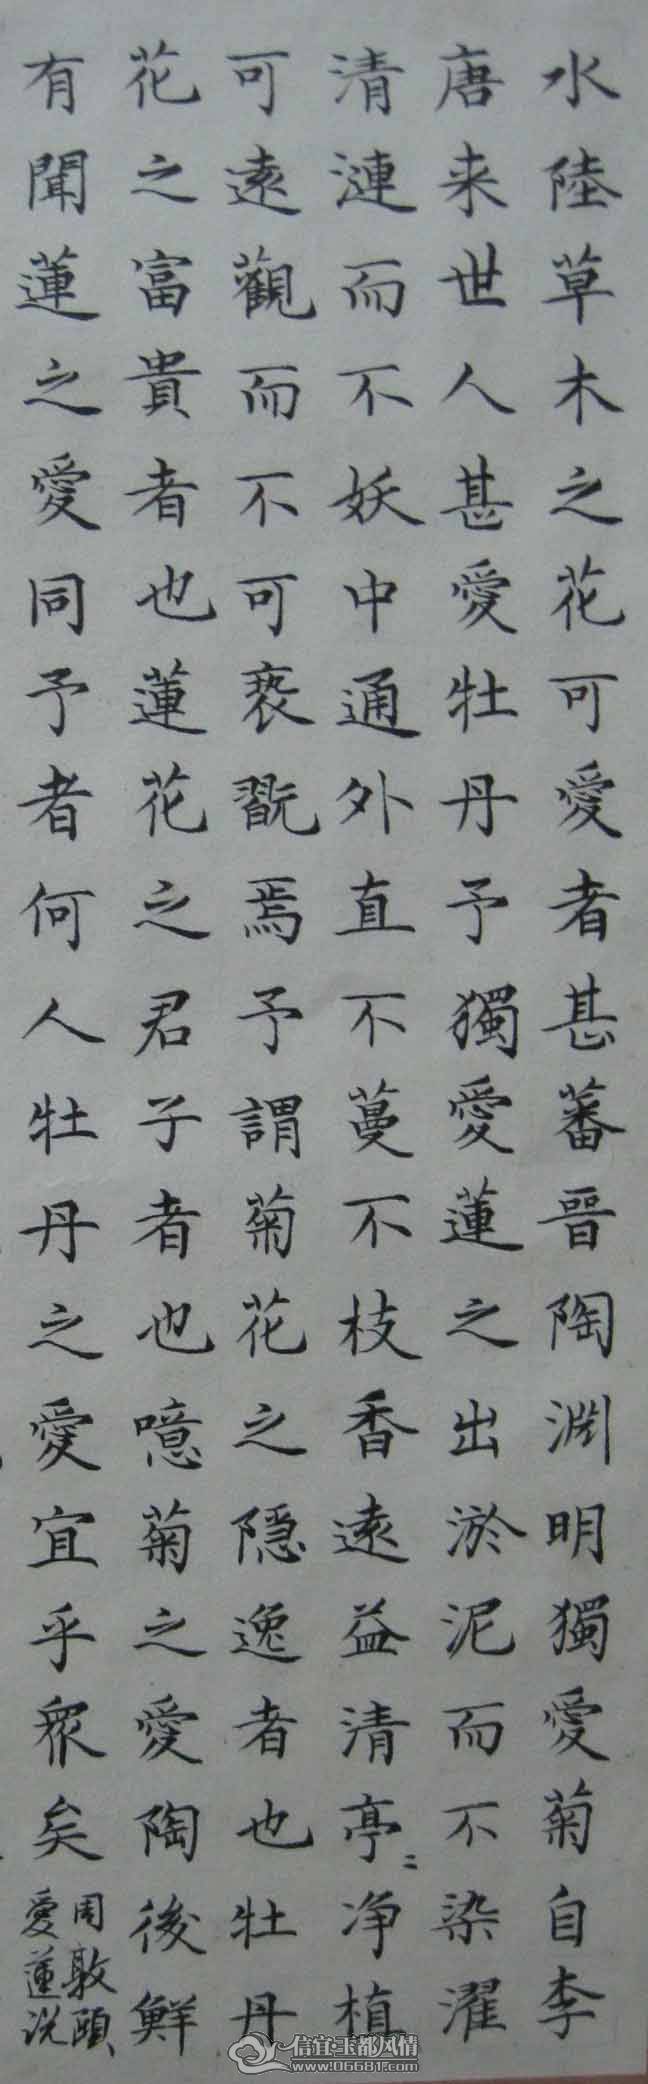 水陸草木之花可愛者甚蕃晉陶渊明獨愛菊自李
唐来世人甚愛牡丹予獨愛蓮之出淤泥而不染濯
清漣而不妖中通外直不蔓不枝香遠益清亭〻净植
可遠觀而不可亵翫焉予謂菊花之隐逸者也牡丹
花之富貴者也蓮花之君子者也噫菊之愛陶後鮮
有聞蓮之愛同予者何人牡丹之愛宜乎眾矣
周敦頤
愛蓮说
信宜·玉都风情
www.06681.com